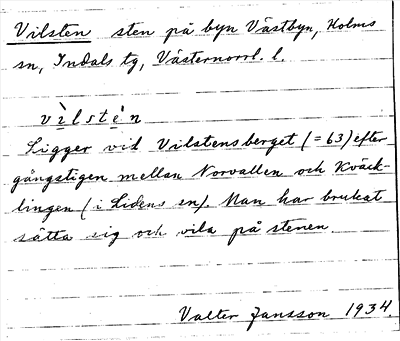 Vilsten sten på byn Västbyn, Holms
sn, Indals tg, Västernorrl. l.
vìlstèn
Ligger vid Vilstensberget (=63) efter
gångstigen mellan Norvallen och Kväck-
lingen (i Lidens sn). Man har brukat
sätta sig och vila på stenen.
Valter Jansson 1934.